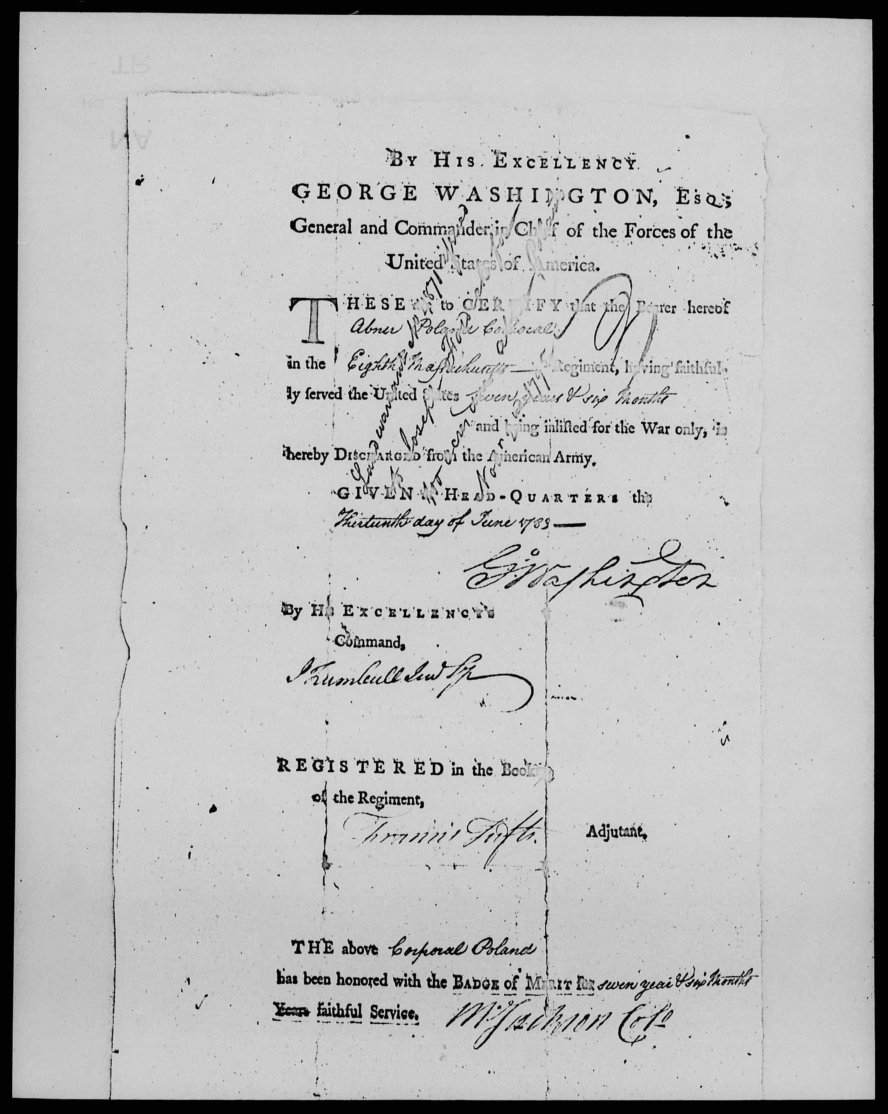 BY HIS EXCELLENCY
GEORGE WASHINGTON, ESQ;
General and Commander in Chief of the Forces of the
United States of America.
THESE are to CERTIFY that the Bearer hereof
Abner Poland Corporal
in the Eighth Massachusetts Regiment, having faithful-
ly served the United States seven years & six Months
and being inlisted for the War only, is
hereby DISCHARGED from the American Army.
GIVEN at HEAD-QUARTERS the
Thirteenth day of June 1783
Go Washington
By HIS EXCELLENCY'S
Command,
J Trumbull Jun Sy
REGISTERED in the Books
of the Regiment,
Francis Tufts. Adjutant,
THE above Corporal Poland
has been honored with the BADGE of MERIT for seven year & six Months
Years faithful Service.
M Jackson Colo
Land warrant No 1871
to Joseph
100 acres